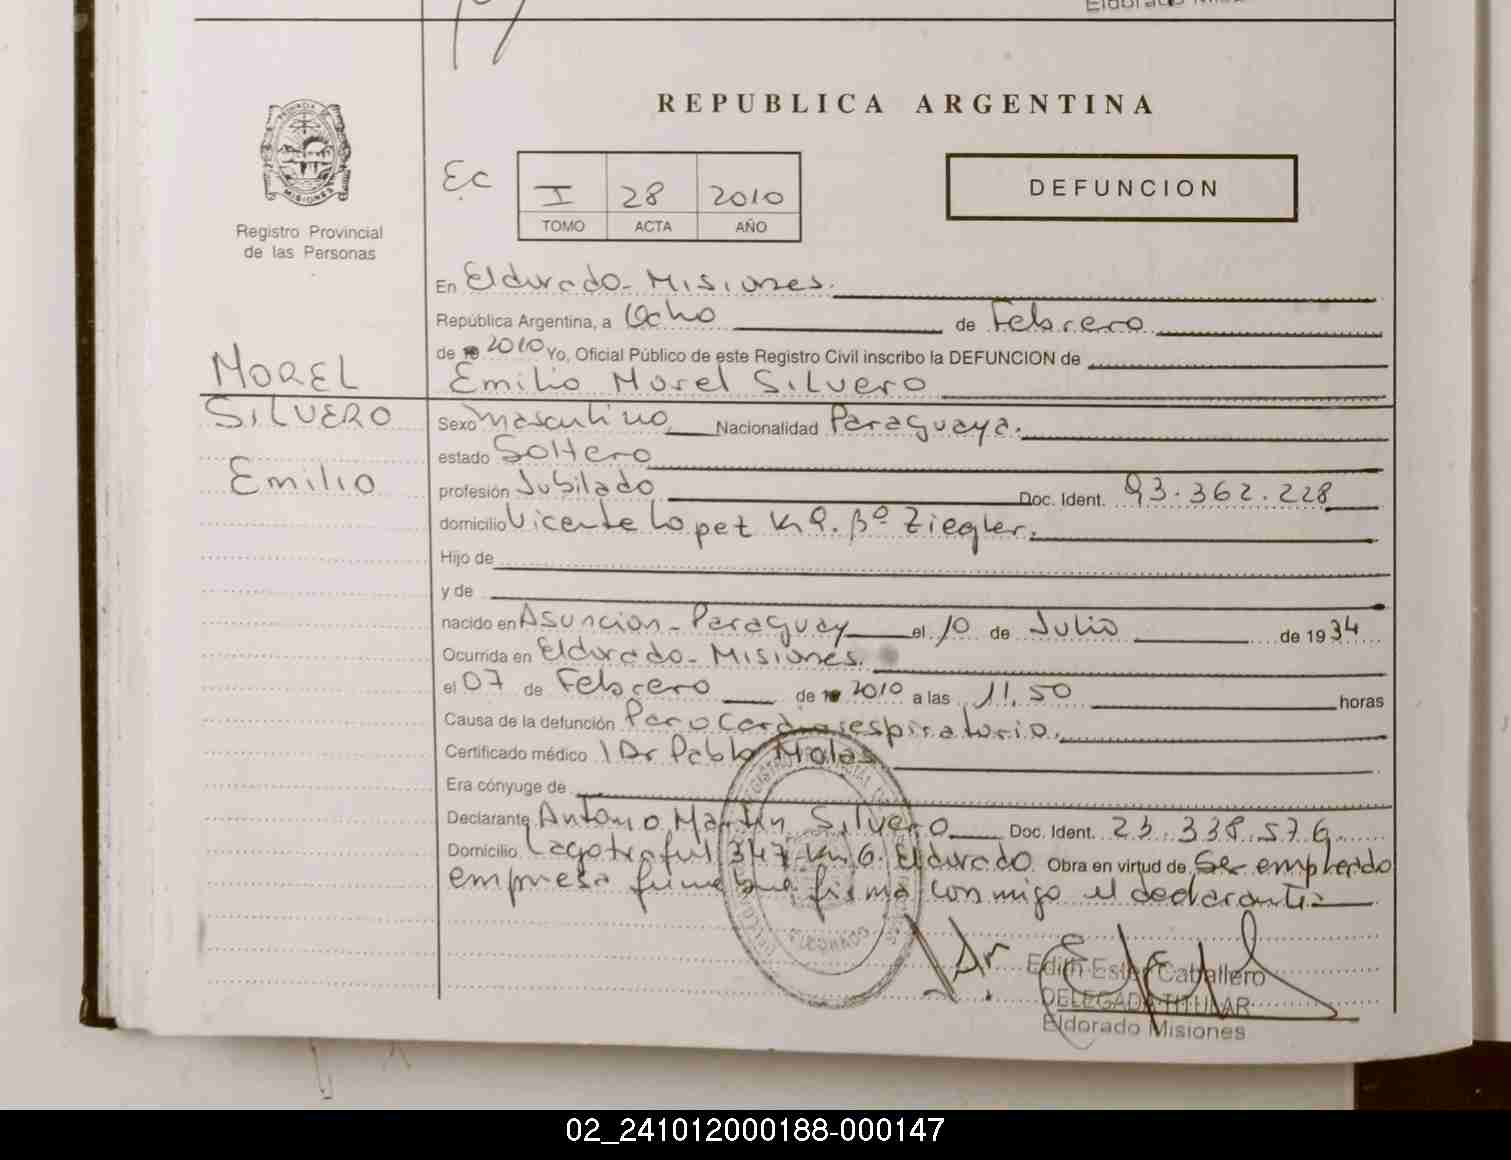 REPUBLICA ARGENTINA
PROVINCIA DE MISIONES
Registro Provincial
de las Personas
Ec
I 28 2010
TOMO ACTA AÑO
DEFUNCION
En Eldorado - Misiones.
República Argentina, a Ocho de Febrero
de 19 2010 Yo, Oficial Público de este Registro Civil inscribo la DEFUNCION de
MOREL
SILVERO
Emilio
Emilio Morel Silvero
Sexo Masculino Nacionalidad Paraguaya.
estado Soltero
profesión Jubilado Doc. Ident. 93.362.228
domicilio Vicente Lopez K 9. Bº Ziegler.
Hijo de
y de
nacido en Asuncion - Paraguay el 10 de Julio de 1934
Ocurrida en Eldorado - Misiones.
el 07 de Febrero de 19 2010 a las 11,50 horas
Causa de la defunción Paro Cardiorespiratorio.
Certificado médico 1 Dr Pablo Molas
Era cónyuge de
Declarante Antonio Martin Silvero Doc. Ident. 23.338.576
Domicilio Lagotraful 347 Km 6. Eldorado Obra en virtud de Ser empleado
empresa funebre, firma conmigo el declarante
ELDORADO
Edith Ester Caballero
DELEGADA TITULAR
Eldorado Misiones
02_241012000188-000147